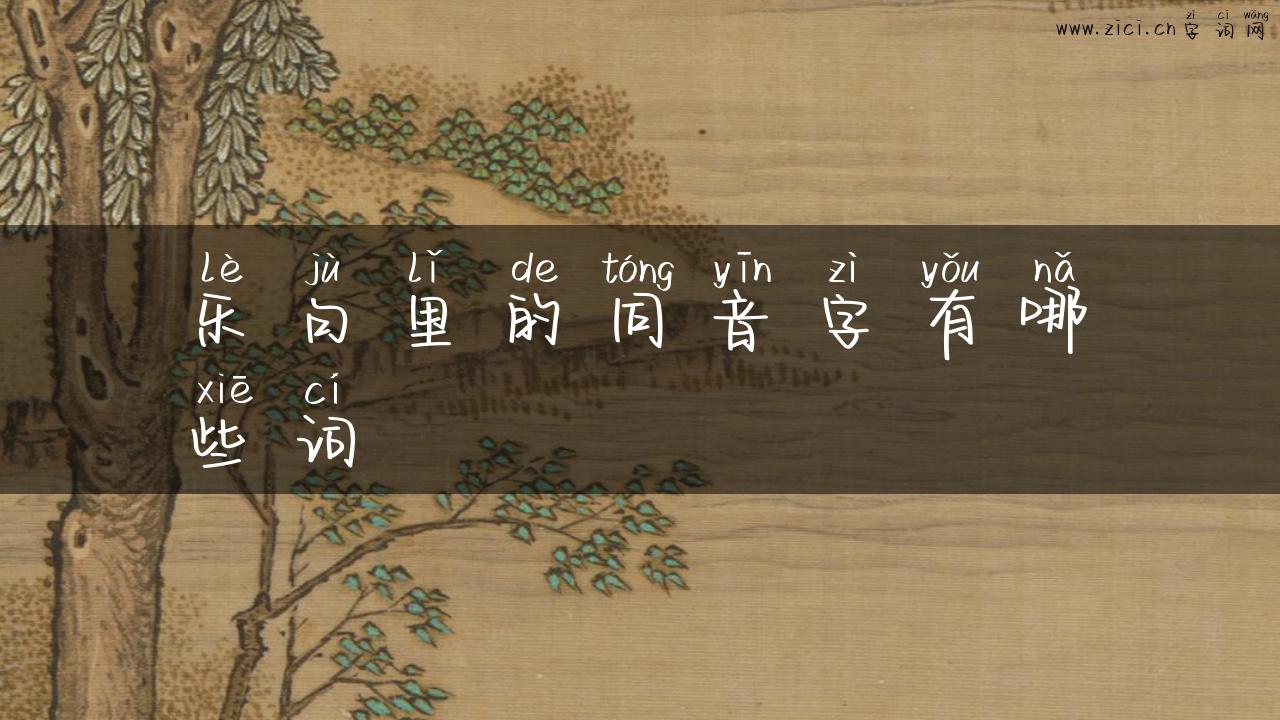 zì cí wǎng
www.zici.cn 字 词 网
lè jù lǐ de tóng yīn zì yǒu nǎ
乐 句 里 的 同 音 字 有 哪
xiē cí
些 词